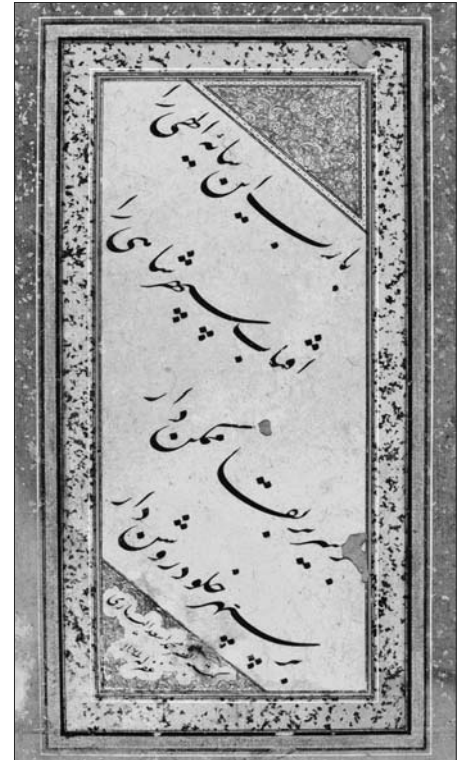 یارب این سایهٔ الهی را
آفتاب سپهر شاهی را
بسریر بقا ممکن دار
بر سپهر خلود روشن دار